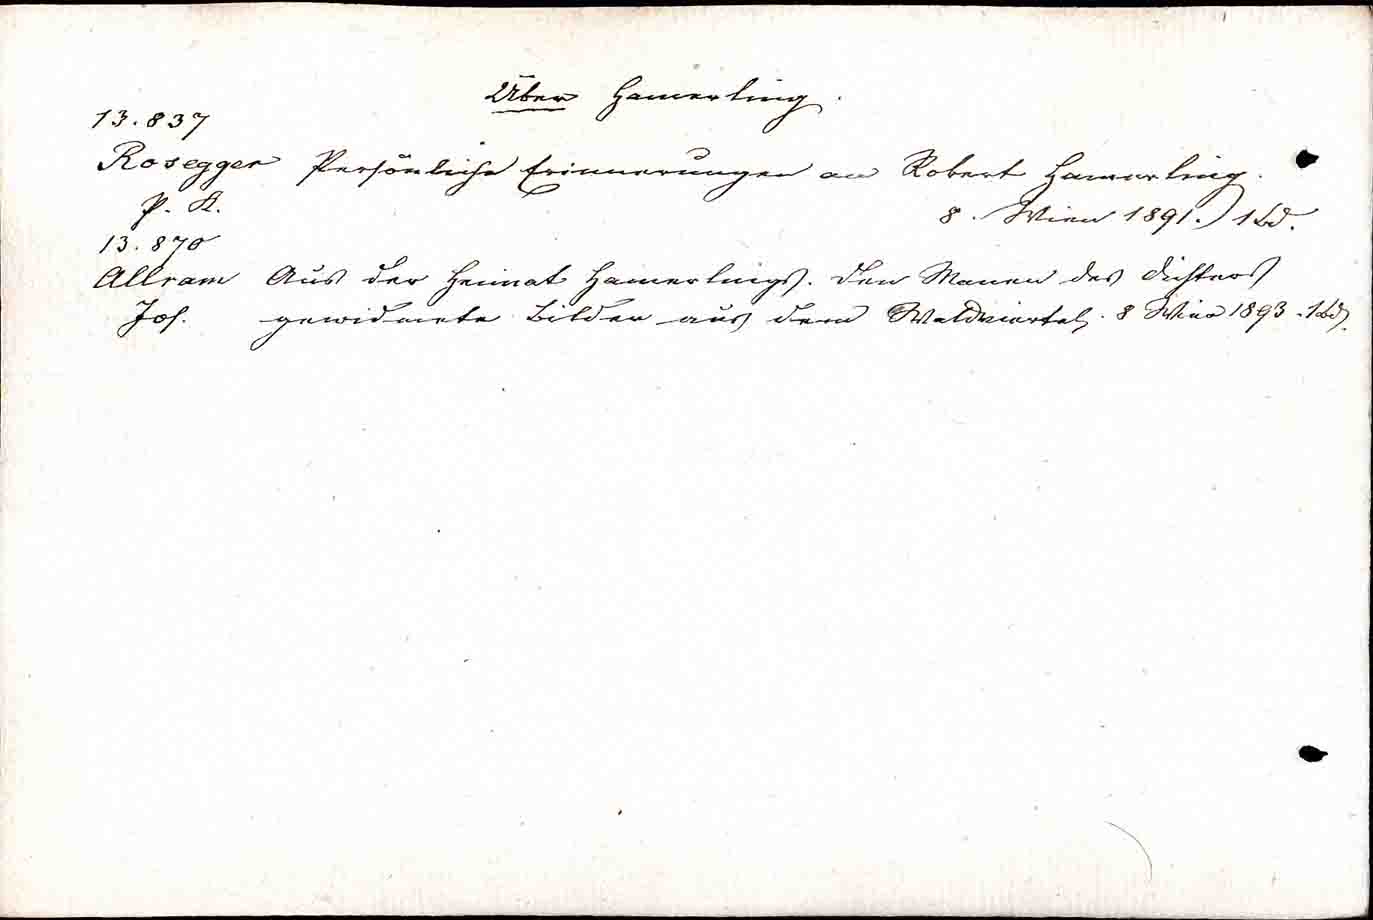 Über Hamerling.
13.837
Rosegger Persönliche Erinnerungen an Robert Hamerling.
P. K. 8. Wien 1891. 1 Bd.
13.870
Allram Aus der Heimat Hamerlings. Den Manen des Dichters
Jos. gewidmete Bilder aus dem Waldviertel. 8 Wien 1893. 1Bd.